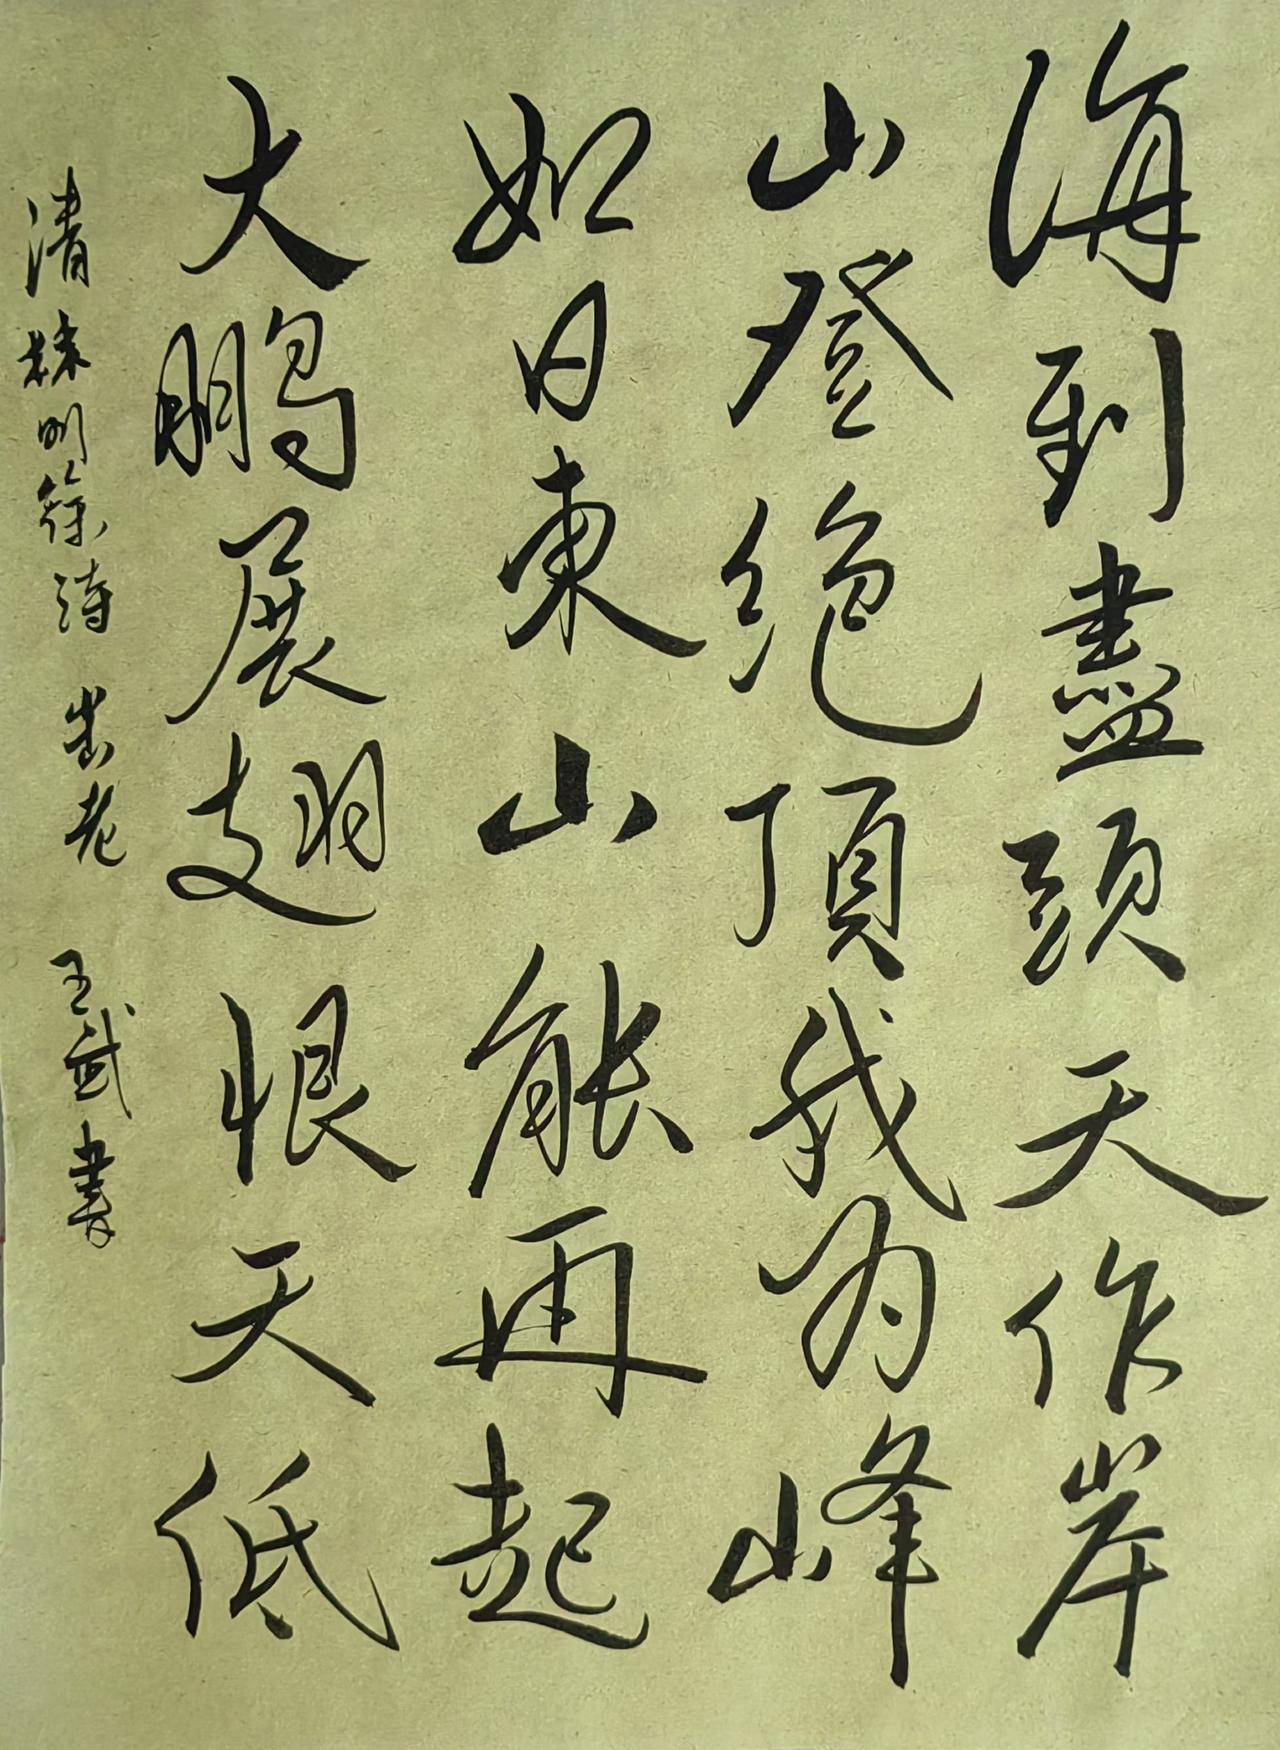 海到盡頭天作岸
山登绝頂我为峰
如日東山能再起
大鵬展翅恨天低
清 林则徐 诗 出老 王武書